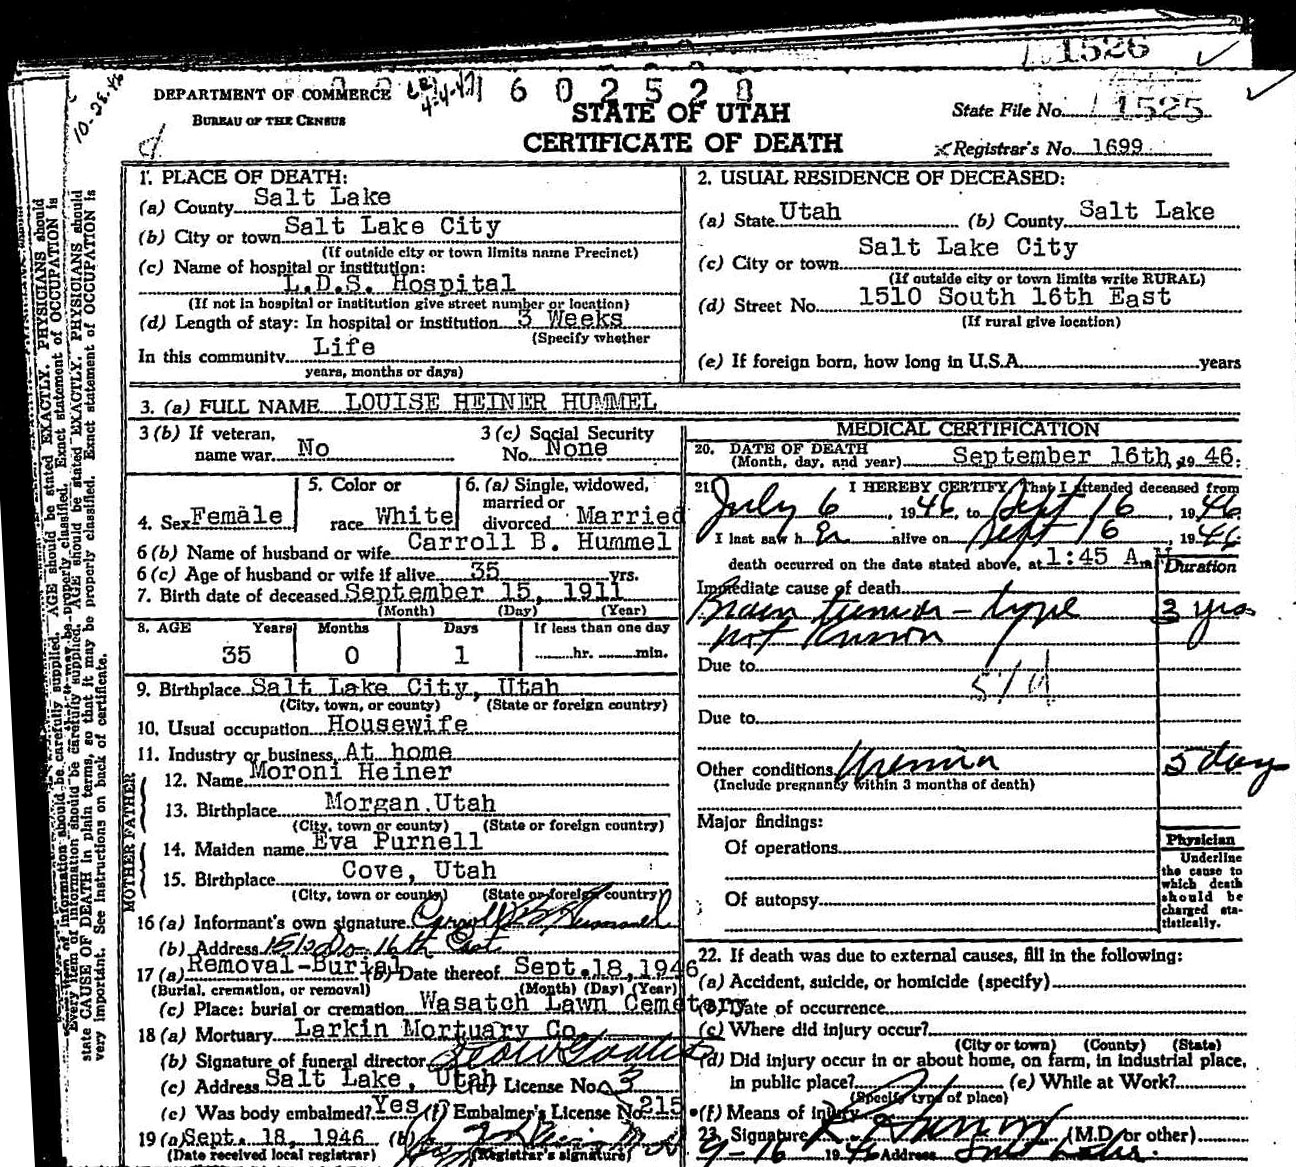 1526
10-28-46
DEPARTMENT OF COMMERCE
4-4-47
602520
BUREAU OF THE CENSUS
STATE OF UTAH
CERTIFICATE OF DEATH
State File No. 1525
Registrar's No. 1699
1. PLACE OF DEATH:
(a) County Salt Lake
(b) City or town Salt Lake City
(If outside city or town limits name Precinct)
(c) Name of hospital or institution:
L.D.S. Hospital
(If not in hospital or institution give street number or location)
(d) Length of stay: In hospital or institution 3 Weeks
(Specify whether
In this community Life
years, months or days)
2. USUAL RESIDENCE OF DECEASED:
(a) State Utah (b) County Salt Lake
(c) City or town Salt Lake City
(If outside city or town limits write RURAL)
(d) Street No. 1510 South 16th East
(If rural give location)
(e) If foreign born, how long in U.S.A. years
3. (a) FULL NAME LOUISE HEINER HUMMEL
3(b) If veteran, name war No
3(c) Social Security No. None
4. Sex Female
5. Color or race White
6. (a) Single, widowed, married or divorced Married
6(b) Name of husband or wife Carroll B. Hummel
6(c) Age of husband or wife if alive 35 yrs.
7. Birth date of deceased September 15, 1911
(Month) (Day) (Year)
8. AGE Years Months Days If less than one day
35 0 1 hr. min.
9. Birthplace Salt Lake City, Utah
(City, town, or county) (State or foreign country)
10. Usual occupation Housewife
11. Industry or business At home
FATHER
12. Name Moroni Heiner
13. Birthplace Morgan, Utah
(City, town or county) (State or foreign country)
MOTHER
14. Maiden name Eva Purnell
15. Birthplace Cove, Utah
(City, town or county) (State or foreign country)
16(a) Informant's own signature Carroll B Hummel
(b) Address 1510 So - 16th East
17(a) Removal-Burial (b) Date thereof Sept. 18, 1946
(Burial, cremation, or removal) (Month) (Day) (Year)
(c) Place: burial or cremation Wasatch Lawn Cemetery
18(a) Mortuary Larkin Mortuary Co.
(b) Signature of funeral director
(c) Address Salt Lake, Utah (d) License No. 3
(e) Was body embalmed? Yes (f) Embalmer's License No. 215
19(a) Sept. 18, 1946 (b)
(Date received local registrar) (Registrar's signature)
MEDICAL CERTIFICATION
20. DATE OF DEATH
(Month, day, and year) September 16th, 1946.
21. I HEREBY CERTIFY, That I attended deceased from
July 6, 1946, to Sept 16, 1946
I last saw her alive on Sept 16, 1946
death occurred on the date stated above, at 1:45 A.M
Duration
Immediate cause of death
Brain tumor - type 3 yrs
not known
Due to
51d
Due to
Other conditions Uremia 5 days
(Include pregnancy within 3 months of death)
Major findings:
Of operations
Of autopsy
Physician
Underline
the cause to
which death
should be
charged sta-
tistically.
22. If death was due to external causes, fill in the following:
(a) Accident, suicide, or homicide (specify)
(b) Date of occurrence
(c) Where did injury occur?
(City or town) (County) (State)
(d) Did injury occur in or about home, on farm, in industrial place,
in public place? (e) While at Work?
(Specify type of place)
(f) Means of injury
23. Signature (M.D. or other)
9-16 1946 Address Salt Lake
Every item of information should be carefully supplied. AGE should be stated EXACTLY. PHYSICIANS should
state CAUSE OF DEATH in plain terms, so that it may be properly classified. Exact statement of OCCUPATION is
very important. See instructions on back of certificate.